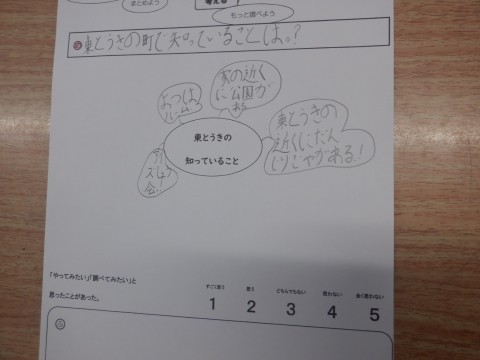 まとめよう
考える
もっと調べよう
東とうきの町で知っていることは。?
家の近く
に公園が
ある
東とうきの
知っていること
東とうきの
近くにだん
じりごやがある!
「やってみたい」「調べてみたい」と
思ったことがあった。
すごく思う
思う
どちらでもない
思わない
全く思わない
1 2 3 4 5